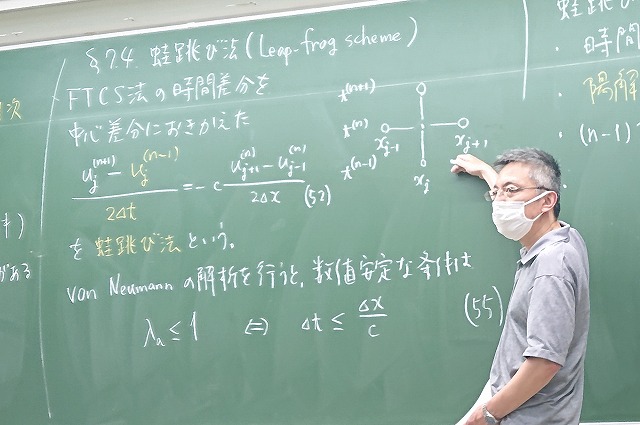 §7.4. 蛙跳び法 (Leap-frog scheme)
FTCS法の時間差分を
中心差分におきかえた
(u_j^(n+1) - u_j^(n-1)) / 2Δt = -c (u_{j+1}^(n) - u_{j-1}^(n)) / 2Δx (52)
を 蛙跳び法 という。
von Neumann の解析を行うと、数値安定な条件は
λa ≤ 1 ⇔ Δt ≤ Δx / c (55)
t^(n+1)
t^(n)
t^(n-1)
x_{j-1}
x_j
x_{j+1}
次
がある
蛙跳び
・時間
・陽解
・(n-1)